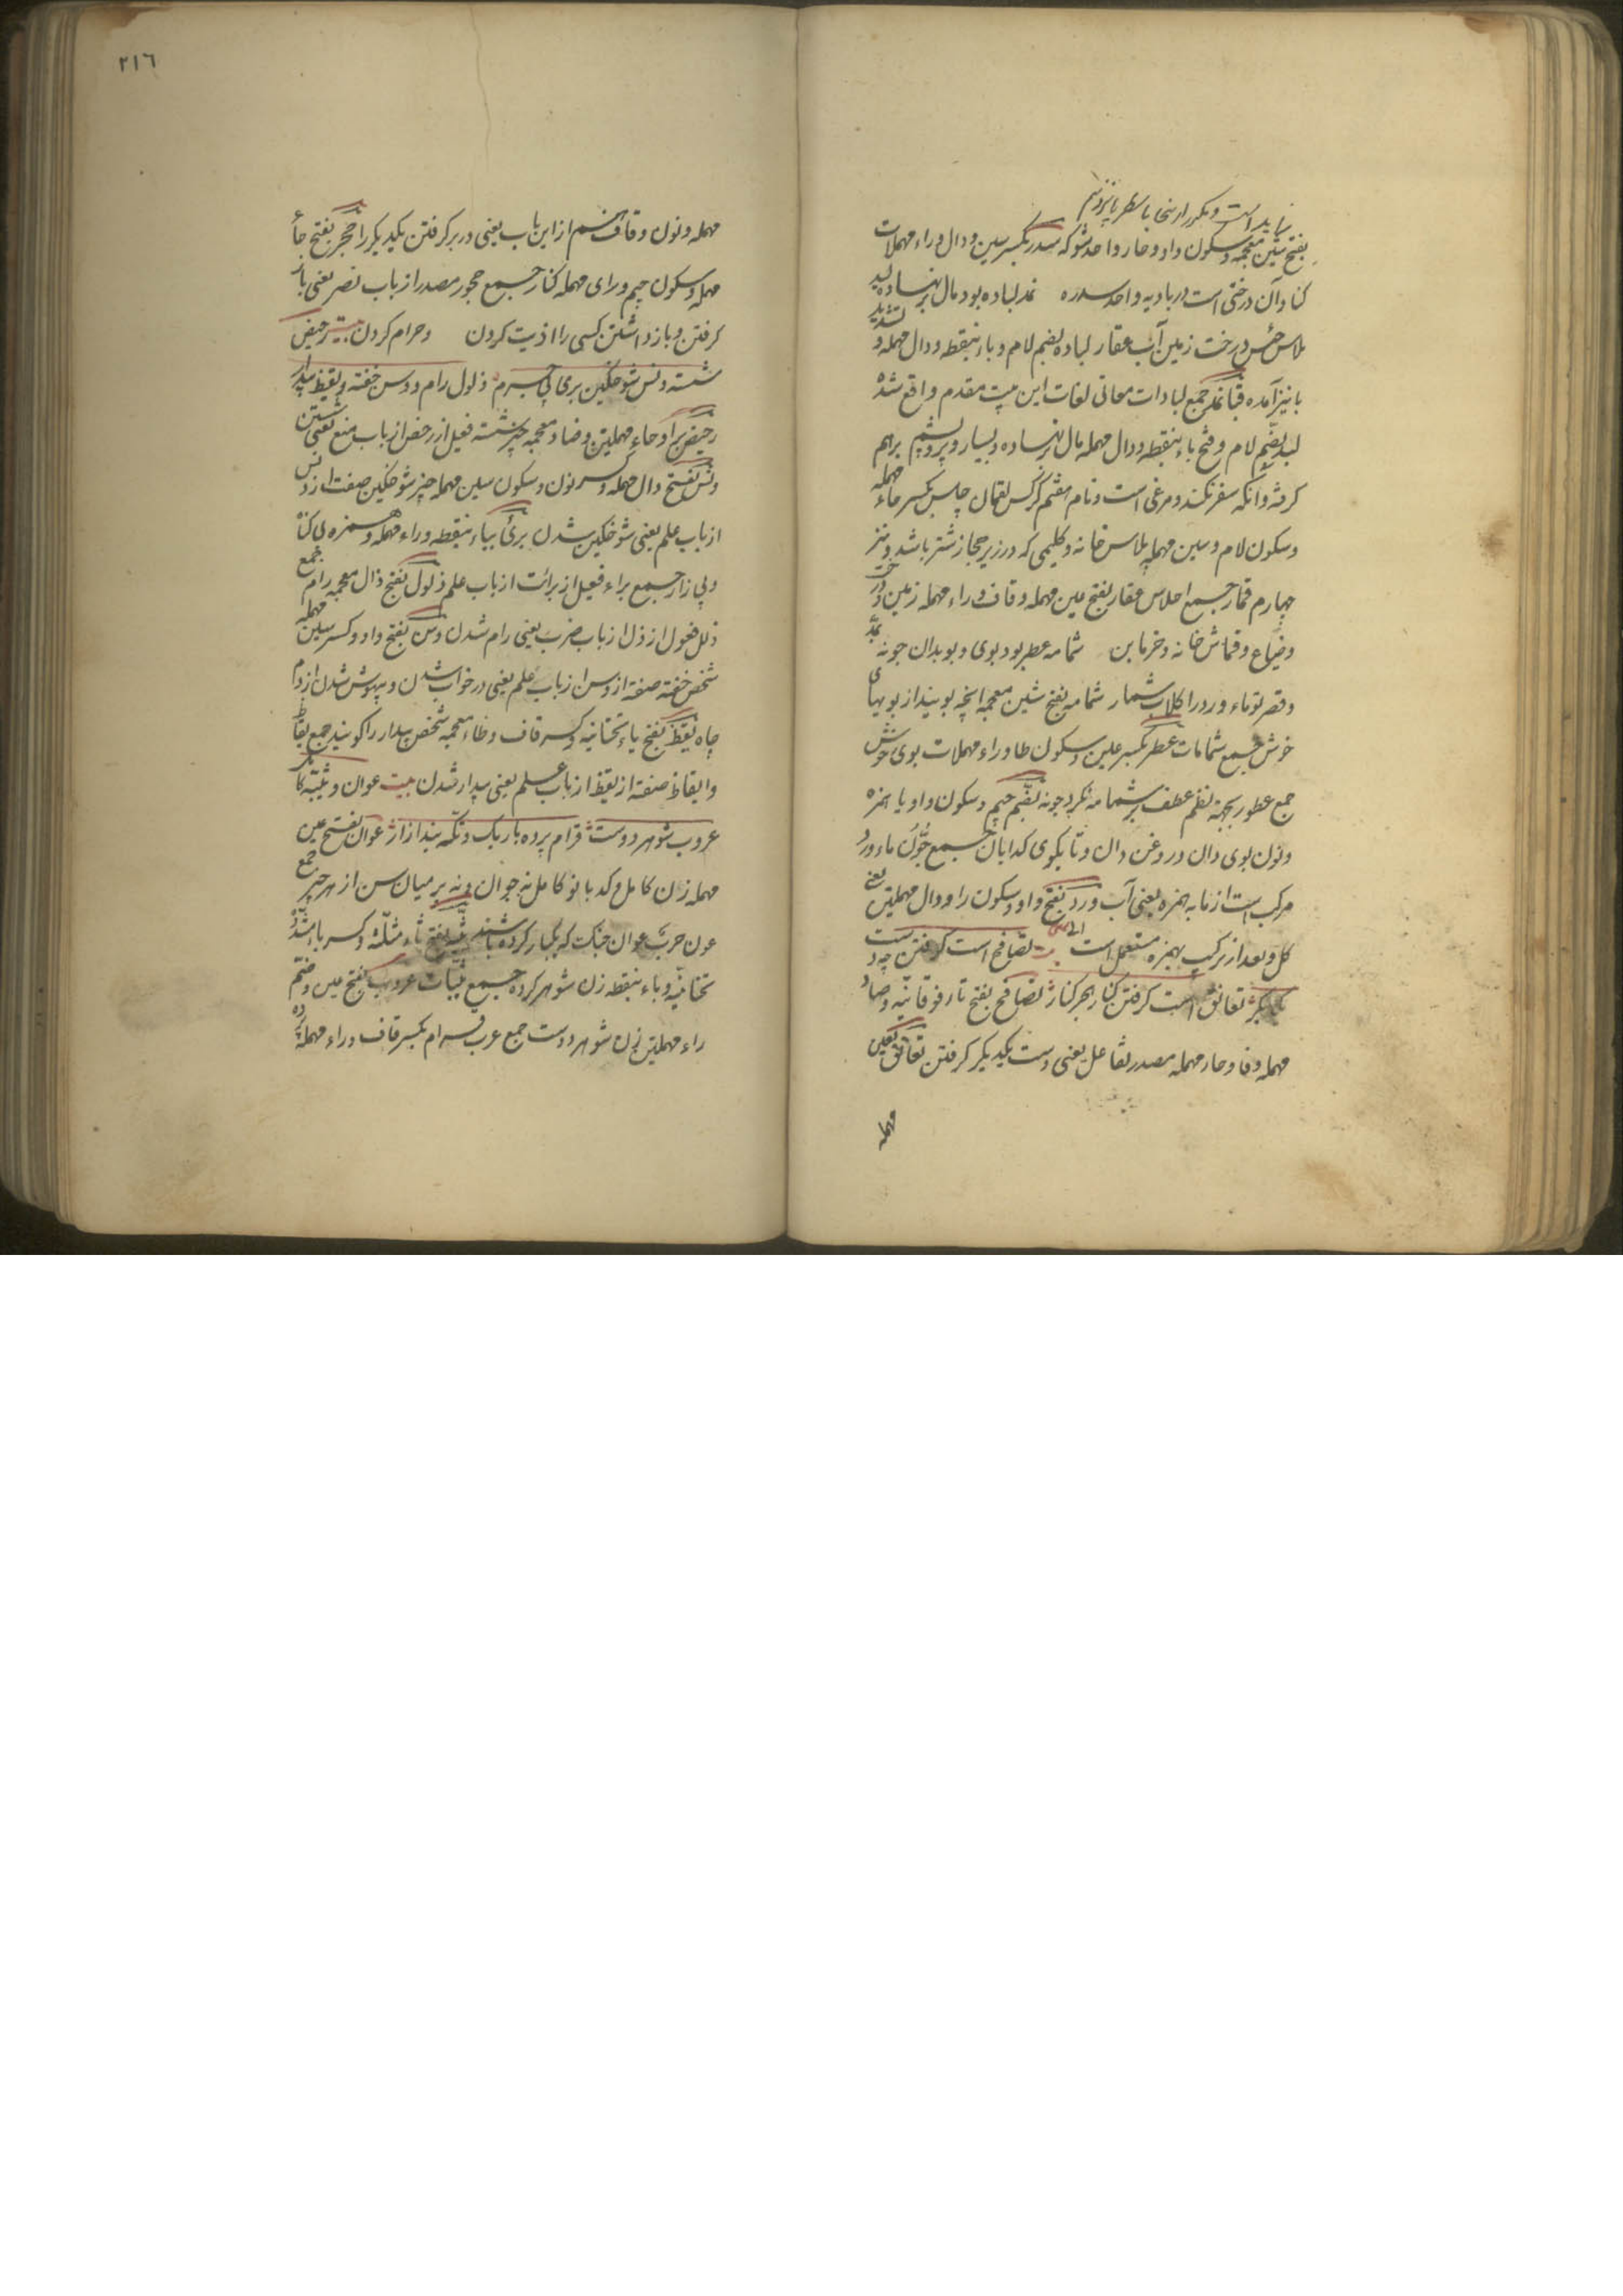 زاید است و مکرر از اینجا تا سطر پانزدهم
بفتح شین معجمه و سکون واو و حاء واحد شوکه سدر بکسر سین و دال و راء مهملات
کنار و آن درختی است در بادیه واحد سدره نمد لباده بود مال برنهاده لبد
پلاس حلس درخت زمین آب عقار لباده بضم لام و باء بنقطه و دال مهمله و تشدید
با نیز آمده قبا نمد جمع لبادات معانی لغات این بیت مقدم واقع شده
لبد بضم لام و فتح باء بنقطه و دال مهمله مال برنهاده و بسیار و پر و پشم برهم
کرفته و آنکه سفر نکند و مرغی است و نام هفتم کرکس لقمان حلس بکسر حاء مهمله
و سکون لام و سین مهمله پلاس خانه و کلیمی که در زیر جهاز شتر باشد و تیر
چهارم قمار جمع احلاس عقار بفتح عین مهمله و قاف و راء مهمله زمین و درخت
و ضیاع و قماش خانه و خرما بن شمامه عطر بود بوی و بوبدان جونه بمد
و قصر تو ماء ورد را کلاب شمار شمامه بفتح شین معجمه انچه بویند از بویهای
خوش جمع شمامات عطر بکسر عین و سکون طا و راء مهملات بوی خوش
جمع عطور بجهة نظم عطف بر شمامه نکرد جونه بضم جیم و سکون واو یا همزه
و نون بوی دان و روغن دان و تابکوی کدابان جمع جون ماء ورد
مرکب است از ما به همزه یعنی آب و ورد بفتح واو و سکون را و دال مهملتین یعنی
کل و بعد از ترکیب بهمزه مستعمل است تصافح است کرفتن چه دست
یکدیکر تعانق است کرفتن کنار حجر کنار تصافح بفتح تاء فوقانیه و صاد
مهمله و فا و حاء مهمله مصدر تفاعل یعنی دست یکدیکر کرفتن تعانق بعین
مهمله
۲۱۶
مهمله و نون و قاف هم از این باب یعنی در بر کرفتن یکدیکر را حجر بفتح حاء
مهمله و سکون جیم و رای مهمله کنار جمع حجور مصدر از باب نصر یعنی باز
کرفتن و باز داشتن کسی را اذیت کردن و حرام کردن بیت رحیض
شسته دنس شوخکین بری بی جرم ذلول رام و وسن خفته و یقظ بیدار
رحیض براء و حاء مهملتین و ضاد معجمه چیز شسته فعیل از رحض از باب منع یعنی شستن
دنس بفتح دال مهمله و کسر نون و سکون سین مهمله چیز شوخکین صفت از دنس
از باب علم یعنی شوخکین شدن بریء بباء بنقطه و راء مهمله و همزه بی کناه
و بی زار جمع براء فعیل از برائت از باب علم ذلول بفتح ذال معجمه رام جمع
ذلل فعول از ذل از باب ضرب یعنی رام شدن وسن بفتح واو و کسر سین مهمله
شخص خفته صفة از وسن از باب علم یعنی در خواب شدن و بیهوش شدن از دم
چاه یقظ بفتح یاء تحتانیه و کسر قاف و ظاء معجمه شخص بیدار را کویند جمع یقاظ
و ایقاظ صفة از یقظ از باب علم یعنی بیدار شدن بیت عوان و ثیبه
عروب شوهر دوست قرام پرده باریک و تکه بند ازار عوان بفتح عین
مهمله زن کامل و کدبانو کامل نه جوان و نه پیر میان سن از هر چیز جمع
عون حرب عوان جنکی که یکبار کرده باشند ثیبه بفتح ثاء مثلثه و کسر یاء مشدد
تحتانیه و باء بنقطه زن شوهر کرده جمع ثیبات عروب بفتح عین و ضم
راء مهملتین زن شوهر دوست جمع عرب قرام بکسر قاف و راء مهمله پرده